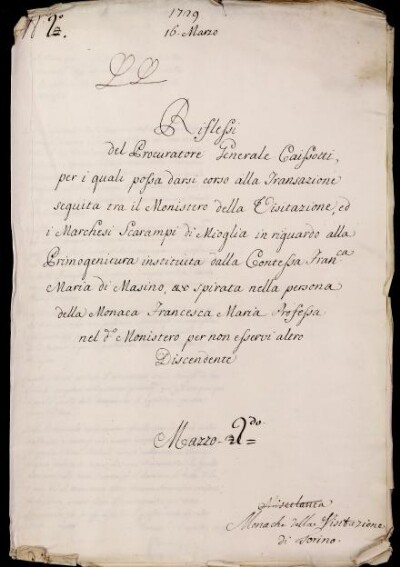 1729
N. 2.º
16. Marzo
Riflessi
del Procuratore Generale Caissotti,
per i quali possa darsi corso alla Transazione
seguita tra il Monistero della Visitazione, ed
i Marchesi Scarampi di Mioglia in riguardo alla
Primogenitura instituita dalla Contessa Fran.ca
Maria di Masino, &c spirata nella persona
della Monaca Francesca Maria Professa
nel d.º Monistero per non esservi altro
Discendente
Mazzo 2.do
Monache della Visitazione
di Torino.